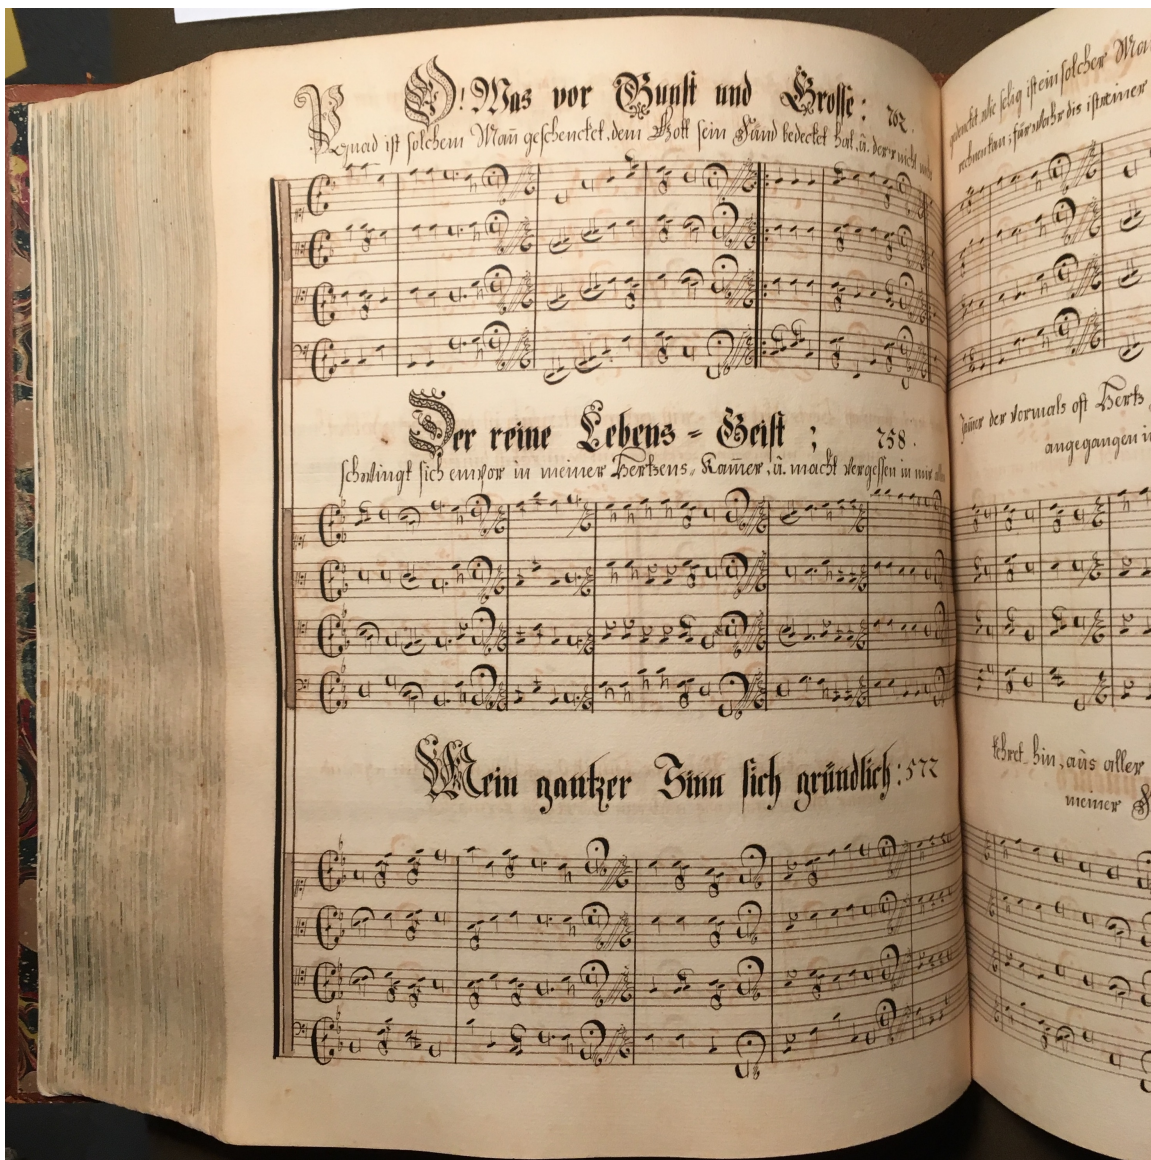 O! Was vor Gunst und Grosse: 702.
Gnad ist solchem Mañ geschencket, dem Gott sein Sünd bedecket hat, ü. der'r nicht
Der reine Lebens = Geist ; 758.
schwingt sich empor in meiner Hertzens, Kam̃er, ü. macht vergessen in mir allen
Mein gantzer Sinn sich gründlich: 572
gedencket wie selig ist ein solcher Man
rechnen kan; für wahr dis ist einer
Jam̃er der vormals oft Hertz
angegangen
kehret hin, aüs aller
meiner